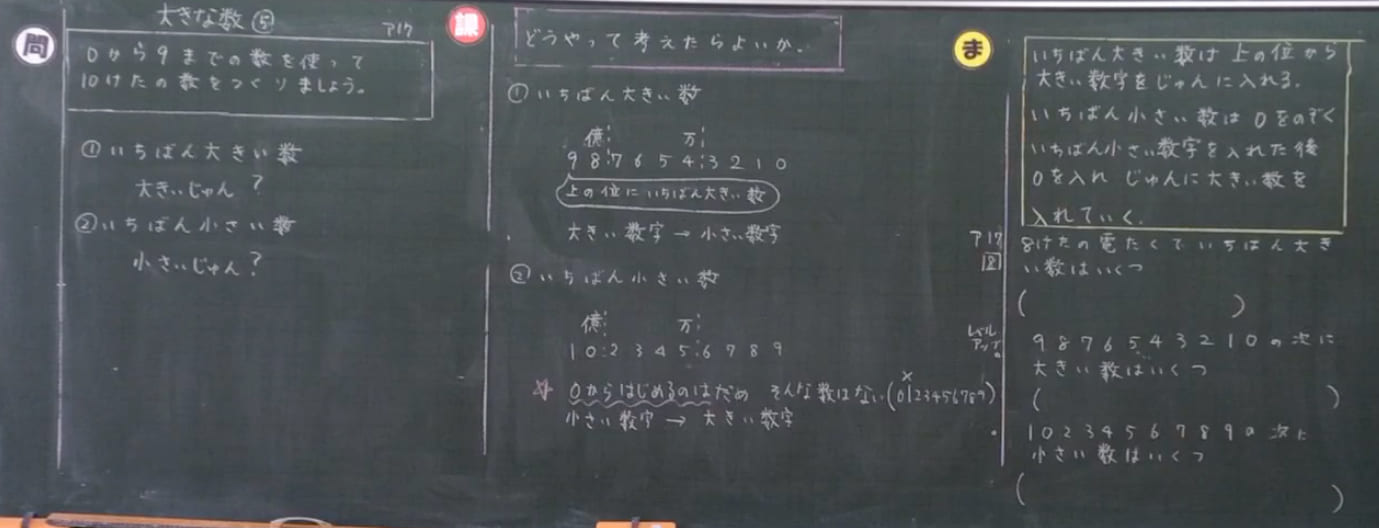 大きな数⑤
ア17
問
0から9までの数を使って
10けたの数をつくりましょう。
①いちばん大きい数
大きいじゅん?
②いちばん小さい数
小さいじゅん?
課
どうやって考えたらよいか。
①いちばん大きい数
億 万
9 8 7 6 5 4 3 2 1 0
上の位にいちばん大きい数
大きい数字→小さい数字
②いちばん小さい数
億 万
1 0 2 3 4 5 6 7 8 9
0からはじめるのはだめ そんな数はない(0123456789)
×
小さい数字→大きい数字
ま
いちばん大きい数は上の位から
大きい数字をじゅんに入れる。
いちばん小さい数は0をのぞく
いちばん小さい数字を入れた後
0を入れ じゅんに大きい数を
入れていく。
ア17
8けたの電たくでいちばん大き
い数はいくつ
( )
レベル
アップ
9 8 7 6 5 4 3 2 1 0の次に
大きい数はいくつ
( )
1 0 2 3 4 5 6 7 8 9の次に
小さい数はいくつ
( )